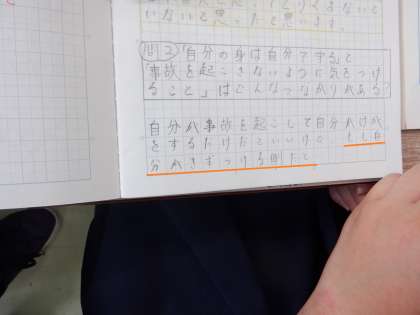 いないと思ったと思います。
問2「自分の身は自分で守る」と
「事故を起こさないように気をつけ
ること」はどんなつながりがある?
自分が事故を起こして自分がけが
をするだけだといいけど もし自
分がきずつける側だと